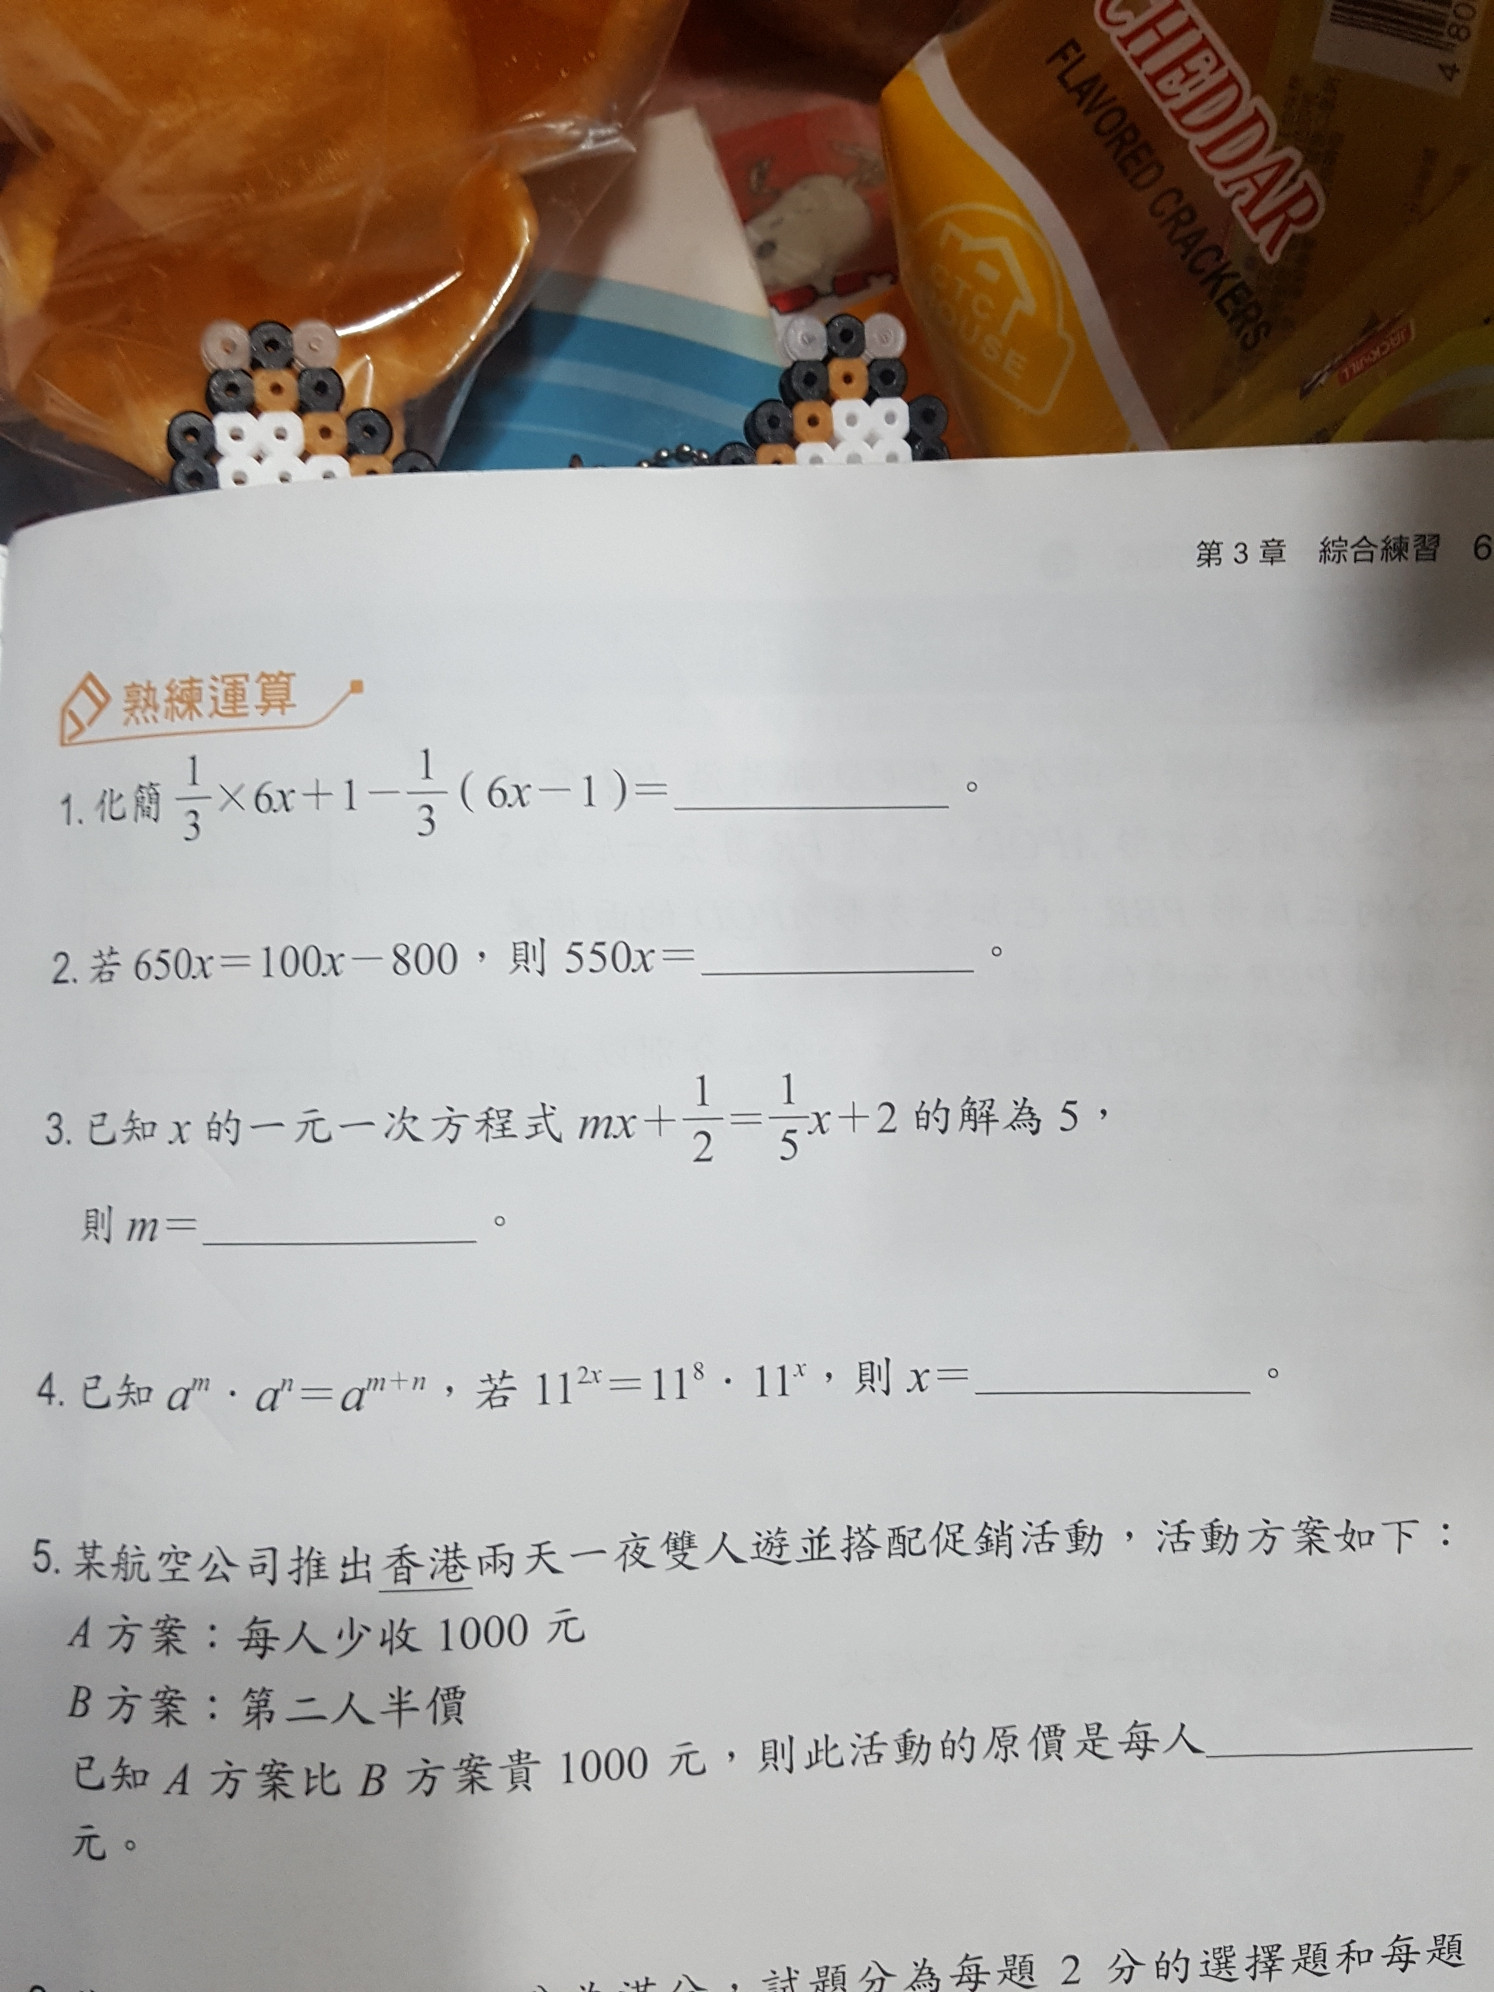 CHEDDAR
FLAVORED CRACKERS
CTC HOUSE
480
第 3 章　綜合練習　6
熟練運算
1. 化簡 1/3×6x+1−1/3(6x−1)=＿＿＿＿＿。
2. 若 650x=100x−800，則 550x=＿＿＿＿＿。
3. 已知 x 的一元一次方程式 mx+1/2=1/5x+2 的解為 5，
則 m=＿＿＿＿＿。
4. 已知 aᵐ．aⁿ=aᵐ⁺ⁿ，若 11²ˣ=11⁸．11ˣ，則 x=＿＿＿＿＿。
5. 某航空公司推出香港兩天一夜雙人遊並搭配促銷活動，活動方案如下：
A 方案：每人少收 1000 元
B 方案：第二人半價
已知 A 方案比 B 方案貴 1000 元，則此活動的原價是每人＿＿＿＿＿
元。
為滿分，試題分為每題 2 分的選擇題和每題